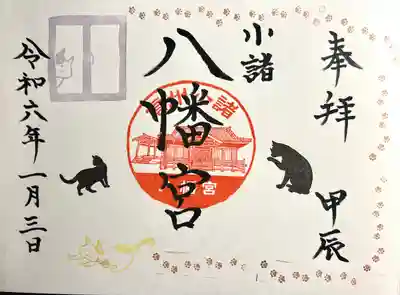 奉拝
甲辰
小諸
八幡宮
令和六年一月三日